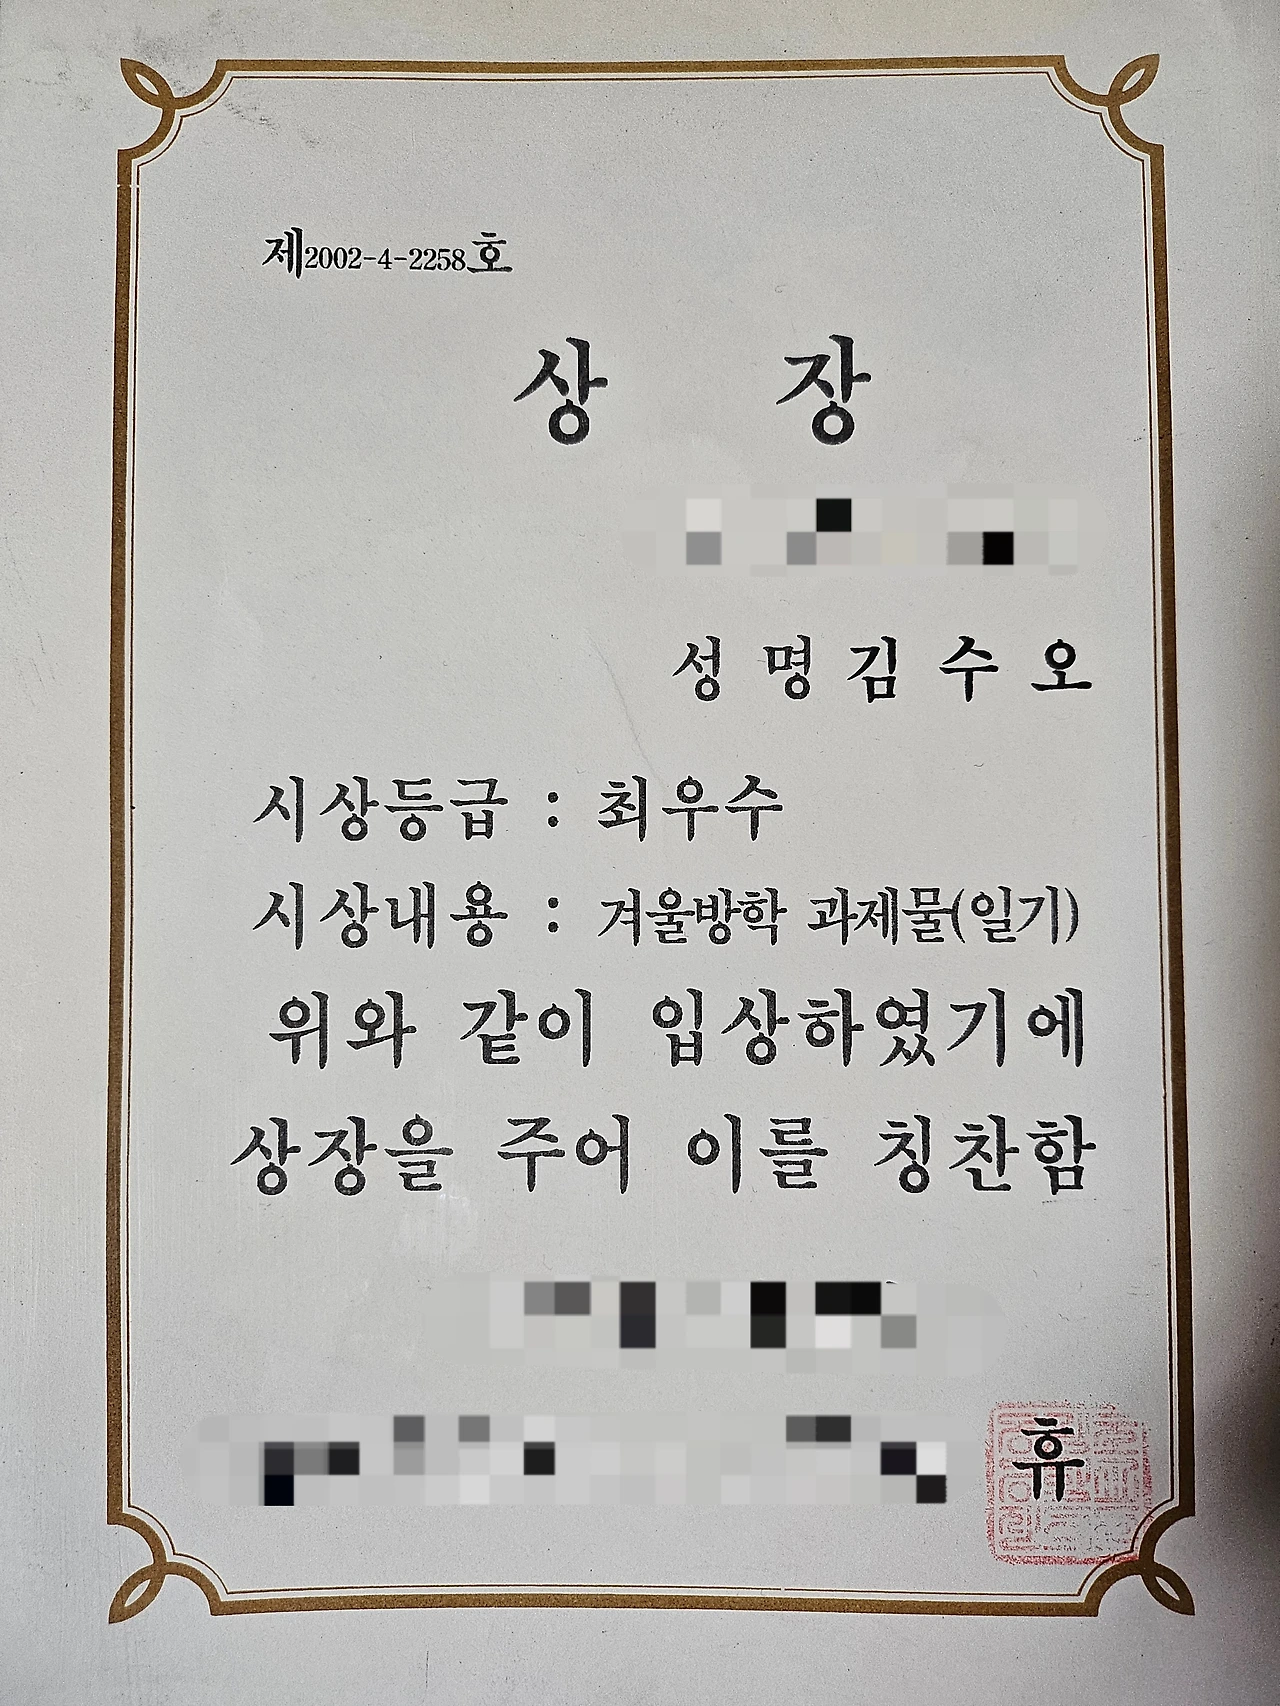 제2002-4-2258호
상 장
성 명 김 수 오
시상등급 : 최우수
시상내용 : 겨울방학 과제물(일기)
위와 같이 입상하였기에
상장을 주어 이를 칭찬함
휴